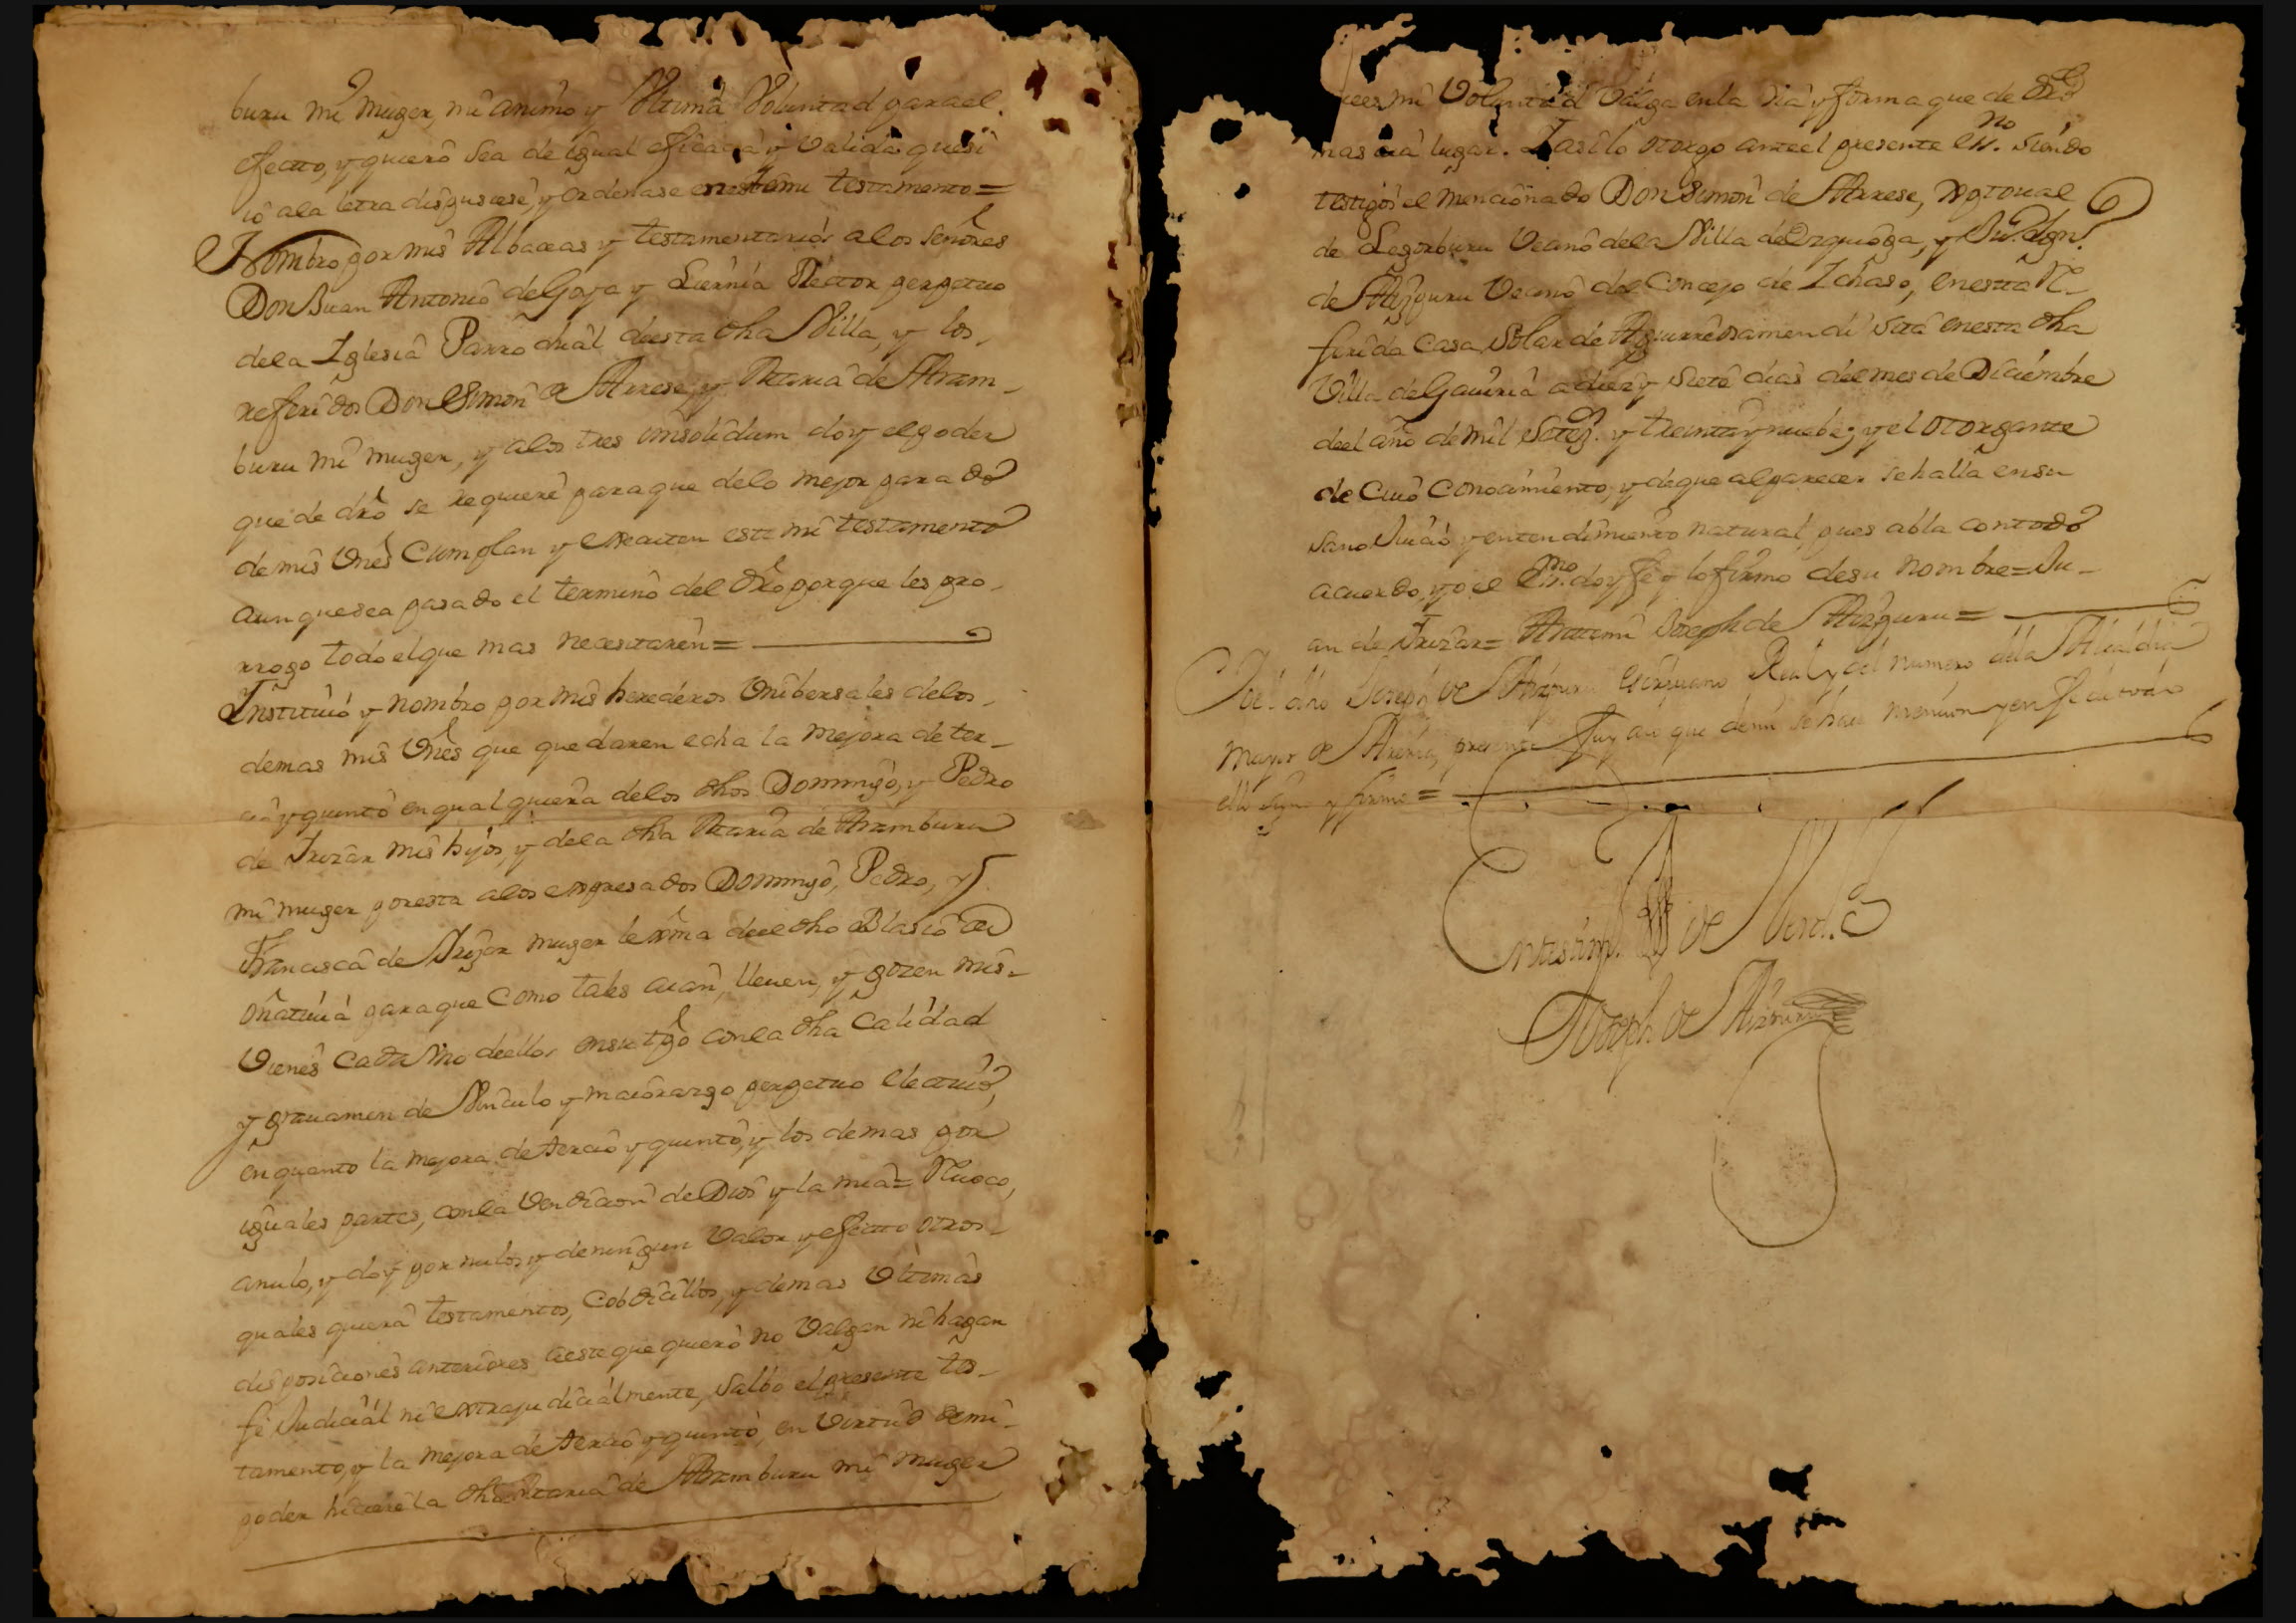 buru mi muger, mi animo y Vltima Voluntad para el
efectto, y quiero sea de igual eficacia y Valida que si
io a la letra dispusiese, y ordenase en este mi testamento=
Nombro por mis Albaceas y testamentarios a los Señores
Don Juan Antonio de Goya y Liernia Rector perpetuo
de la Iglesia Parrochial de esta dha Villa, y los
referidos Don Simon de Arrese, y Maria de Aram-
buru mi muger, y a los tres innsolidum doy el poder
que de dro se requiere para que de lo mejor parado
de mis Vnes Cumplan y executen este mi testamento
aunque sea pasado el termino del dro porque les pro-
rrogo todo el que mas necesitaren=
Instituio y nombro por mis herederos Vnibersales de los
demas mis Vnes que quedaren echa la mejora de ter-
cio y quinto en qualquiera de los dhos Domingo, y Pedro
de Irizar mis hijos, y de la dha Maria de Aramburu
mi muger por esta a los expresados Domingo, Pedro, y
Francisca de Irizar muger lexma de el dho Blasio de
Oñativia para que Como tales aian, lleuen, y gozen mis
Vienes Cada Vno de ellos insutgo con la dha Calidad
y grauamen de Vinculo y maiorazgo perpetuo electiuo,
en quanto la mejora de tercio y quinto, y los demas por
iguales partes, con la Vendicion de Dios y la mia= Reuoco,
anulo, y doy por nulos y de ningun Valor y efectto otros
quales quiera testamentos, Cobdicillos, y demas Vltimas
disposiciones anteriores a este que quiero no Valgan ni hagan
fe Judicial ni extrajudicialmente, salbo el presente tes-
tamento, y la mejora de tercio y quinto, en Virtud de mi
poder hiciere la dha Maria de Aramburu mi muger
mi Voluntad Valga en la Via y forma que de dro
mas aia lugar. I asi lo otorgo ante el presente essno. siendo
testigos el mencionado Don Simon de Arrese, Xptoual
de Legorburu Vecino de la Villa de Ezquioga, y Ju. Ygn.
de Aizpuru Vecino del Concejo de Ichaso, en esta Re-
ferida Casa Solar de Aguirre Osamendi sita en esta dha
Villa de Gauiria a diez y siete dias del mes de Diciembre
de el año de mil Setez. y treinta y nuebe; y el otorgante
de Cuio Conocimiento, y de que al parecer se halla en su
sano Juicio y entendimiento natural, pues abla con todo
acuerdo, yo el Esno. doy fe y lo firmo de su nombre=Ju-
an de Irizar= Antemi Joseph de Aizpuru=
Yo el dho Joseph de Aizpuru Escriuano Real y del numero de la Alcaldia
Mayor de Areria, presente fuy a lo que de mi se hace mencion y en fe de todo
ello signo y firmo =
En testim.o de Verd.d
Joseph de Aizpuru